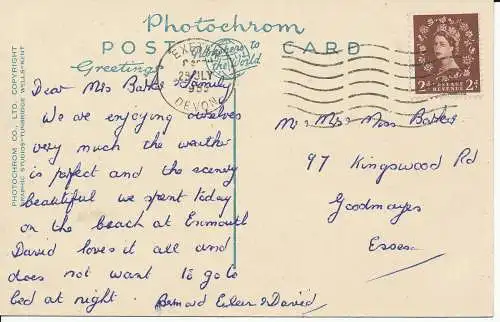 Photochrom
POST CARD
Greetings
Publishers to
the World
DEVON
2D POSTAGE REVENUE 2D
PHOTOCHROM CO., LTD. COPYRIGHT
GRAPHIC STUDIOS · TUNBRIDGE WELLS · KENT
Dear Mrs & Family
We are enjoying ourselves
very much the weather
is pefect and the scenery
beautiful we spent today
on the beach at Exmouth
David loves it all and
does not want to go to
bed at night. Bernard Eileen & David
Mr Mrs Miss
97 Kingswood Rd
Goodmayes
Essex